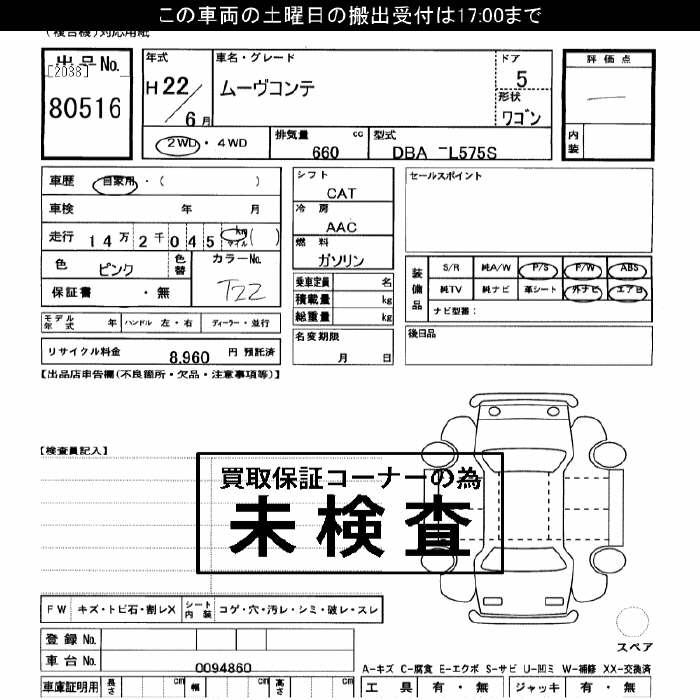 この車両の土曜日の搬出受付は17:00まで
(複合機)対応用紙
出品No.
[2038]
80516
年式
H22/6月
車名・グレード
ムーヴコンテ
ドア
5
形状
ワゴン
評価点
内装
2WD・4WD
排気量 660 cc
型式 DBA－L575S
車歴 自家用・( )
車検 年 月
走行 14万2千045 km マイル ( )
色 ピンク 色替
カラーNo.
T22
保証書 ・無
モデル年式 年 ハンドル 左・右 ディーラー・並行
リサイクル料金 8,960 円 預託済
シフト
CAT
冷房
AAC
燃料
ガソリン
乗車定員 名
積載量 kg
総重量 kg
名変期限
月 日
セールスポイント
装備品
S/R 純A/W P/S P/W ABS
純TV 純ナビ 革シート 外ナビ エアB
ナビ型番:
後日品
【出品店申告欄(不良箇所・欠品・注意事項等)】
【検査員記入】
買取保証コーナーの為
未検査
FW キズ・トビ石・割レX シート内装 コゲ・穴・汚レ・シミ・破レ・スレ
登録No.
車台No. 0094860
車庫証明用 長さ cm 幅 cm 高さ cm
スペア
A-キズ C-腐食 E-エクボ S-サビ U-凹ミ W-補修 XX-交換済
工具 有・無 ジャッキ 有・無